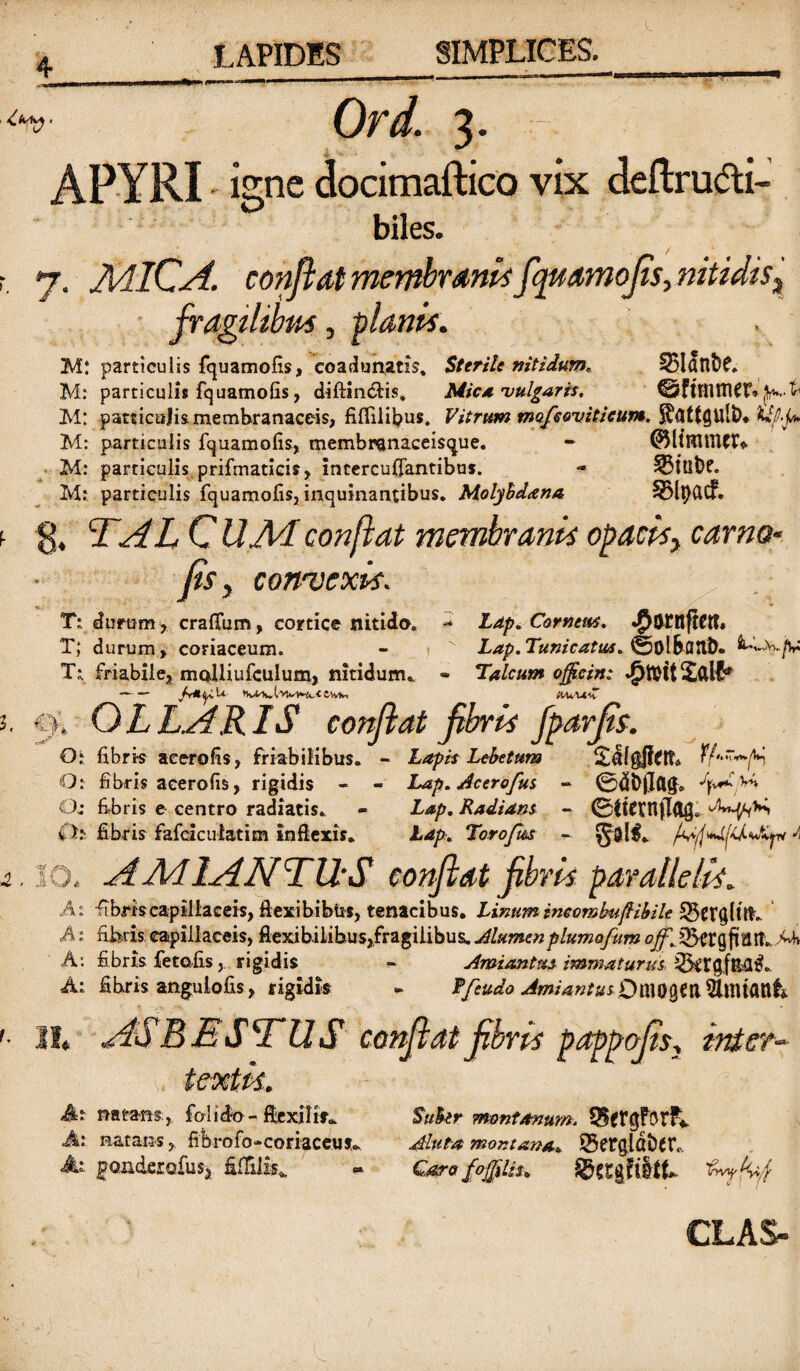 4 LAPIDES SIMPLICES.
Ord. 3.
APYRI igne docimaſtico vix deſtructi-
biles.
7. MICA. conſtat membranis ſquamoſis, nitidis,
fragilibus, planis.
M: particulis ſquamoſis, coadunatis. Sterile nitidum. Blände.
M: particulis ſquamoſis, diſtinctis. Mica vulgaris. Skimmer.
M: particulis membranaceis, fiſſilibus. Vitrum moſcoviticum. Kattguld.
M: particulis ſquamoſis, membranaceisque. - Glimmer.
M: particulis priſmaticis, intercuſſantibus. - Binde.
M: particulis ſquamoſis, inquinantibus. Molybdæna Blyack.
8. TALCUM conſtat membranis opacis, carno-
ſis, convexis.
T: durum, craſſum, cortice nitido. - Lap. Corneus. Hornſten.
T; durum, coriaceum. - Lap. Tunicatus. Solband.
T: friabile, molliuſculum, nitidum. - Talcum officin: Hwit Talk
9. OLLARIS conſtat fibris ſparſis.
O: fibris aceroſis, friabilibus. - Lapis Lebetum Tälgſten.
O: fibris aceroſis, rigidis - - Lap. Aceroſus - Sådſlag.
O: fibris e centro radiatis. - Lap. Radians - Stiernſlag.
O: fibris faſciculatim inflexis. Lap. Toroſus - Gols.
10. AMIANTUS conſtat fibris parallelis.
A: fibris capillaceis, flexibibus, tenacibus. Linum incombuſtibile Berglin.
A: fibris capillaceis, flexibilibus, fragilibus. Alumen plumoſum off. Bergſian.
A: fibris ſetoſis, rigidis - Amiantus immaturus Bergſnas.
A: fibris anguloſis, rigidis - Pſeudo Amiantus Omogen Amiant
11. ASBESTUS conſtat fibris pappoſis, inter-
textis.
A: natans, ſolido-flexilis. Suber montanum. Bergkork.
A: natans, fibroſo-coriaceus. Aluta montana. Bergläder.
A: ponderoſus, fiſſilis. - Caro foſſilis. Bergkiött.
CLAS-